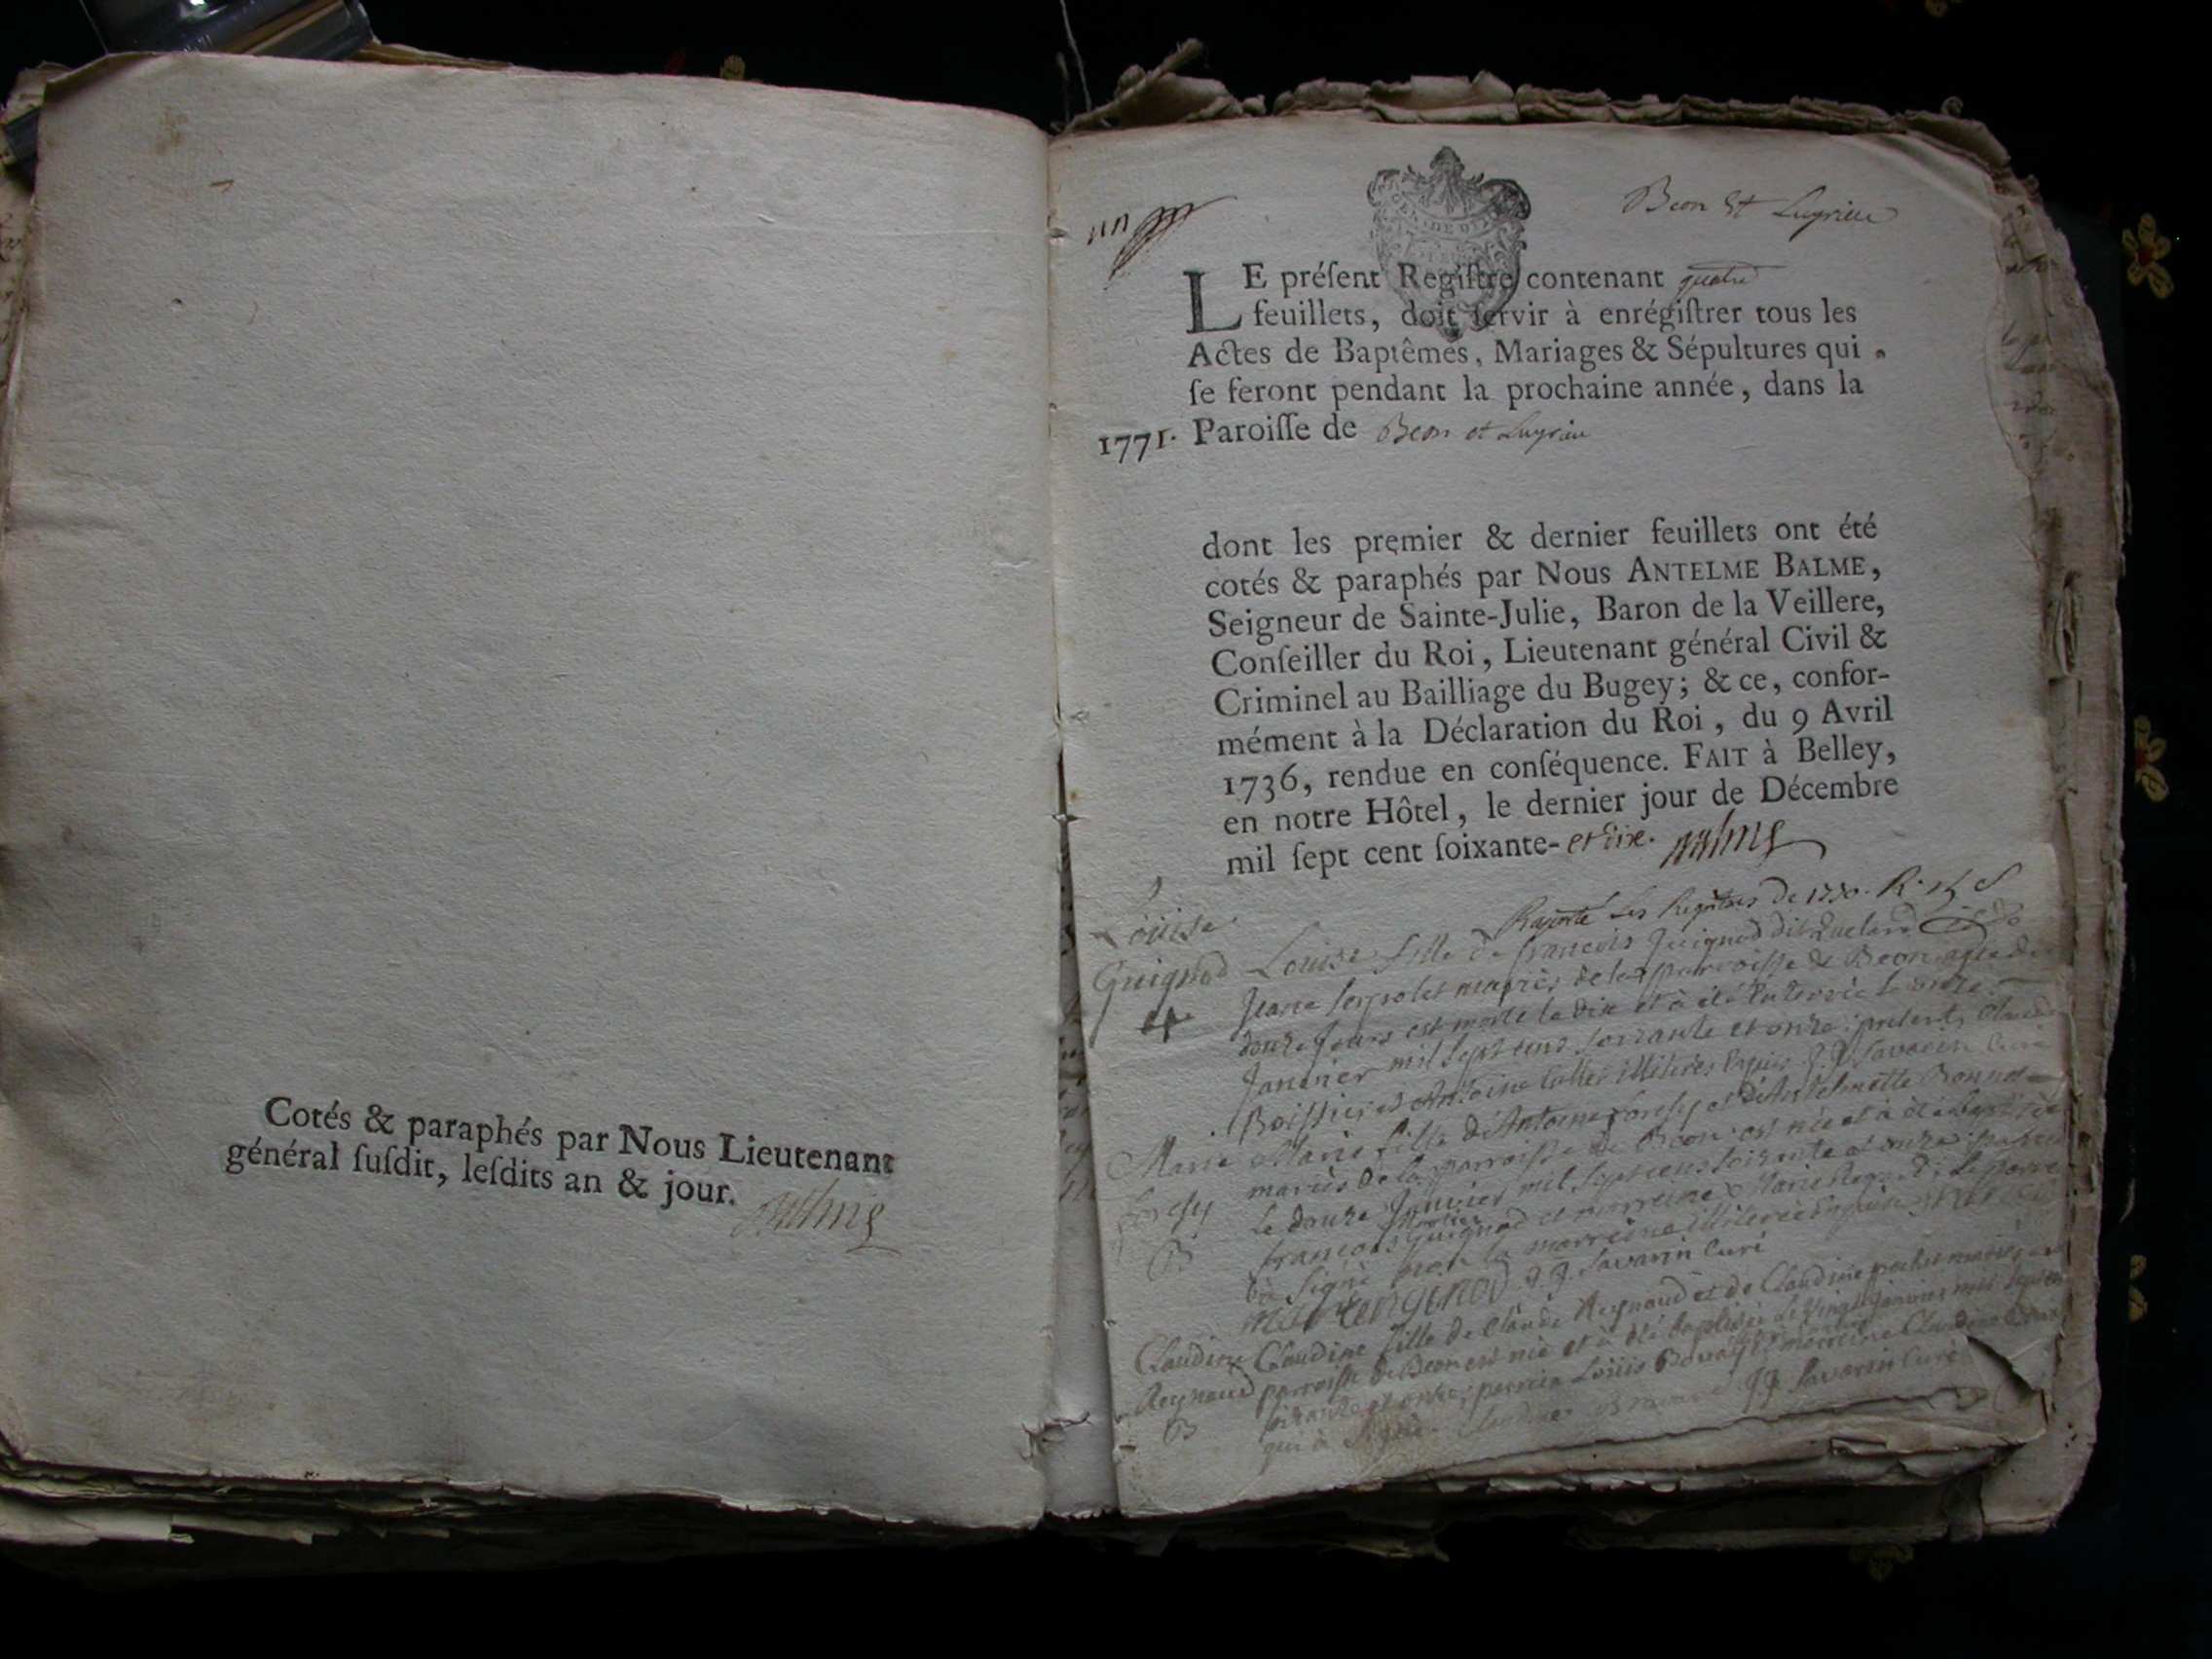 Cotés & paraphés par Nous Lieutenant
général ſuſdit, leſdits an & jour.
Balme
un
Beon Et Luyrieu
LE préſent Regiſtre contenant quatre
feuillets, doit ſervir à enrégiſtrer tous les
Actes de Baptêmes, Mariages & Sépultures qui
ſe feront pendant la prochaine année, dans la
1771. Paroiſſe de Beon et Luyrieu
dont les premier & dernier feuillets ont été
cotés & paraphés par Nous ANTELME BALME,
Seigneur de Sainte-Julie, Baron de la Veillere,
Conſeiller du Roi, Lieutenant général Civil &
Criminel au Bailliage du Bugey; & ce, confor-
mément à la Déclaration du Roi, du 9 Avril
1736, rendue en conſéquence. FAIT à Belley,
en notre Hôtel, le dernier jour de Décembre
mil ſept cent ſoixante- et dix. Balme
Les Registres de
Louise
Guignod
Louise fille de francois Guignod dit et de
Jeane mariés de la parroisse de Beon agée de
douze jours est morte le dix et à été Enterrée le onze
Janvier mil sept cens soixante et onze: presents Claude
Boissier et Antoine illiteres Enquis. J. J. Savarin Curé
Marie
B
Marie fille d'Antoine et d'Anthelmette Bonnet
mariés de la parroisse de Beon est née et à été baptisée
le douze Janvier mil sept cens soixante et onze: parrein
francois Guignod et marreine Marie Le parrein
à signé non la marreine illiterée Enquise
J. J. Savarin Curé
Claudine
Reynaud
B
Claudine fille de Claude Reynaud et de Claudine mariés
parroisse de Beon est née et à été baptisée le vingt Janvier mil sept cens
soixante et onze, parrein Louis et marreine Claudine
qui à signé. J. J. Savarin Curé